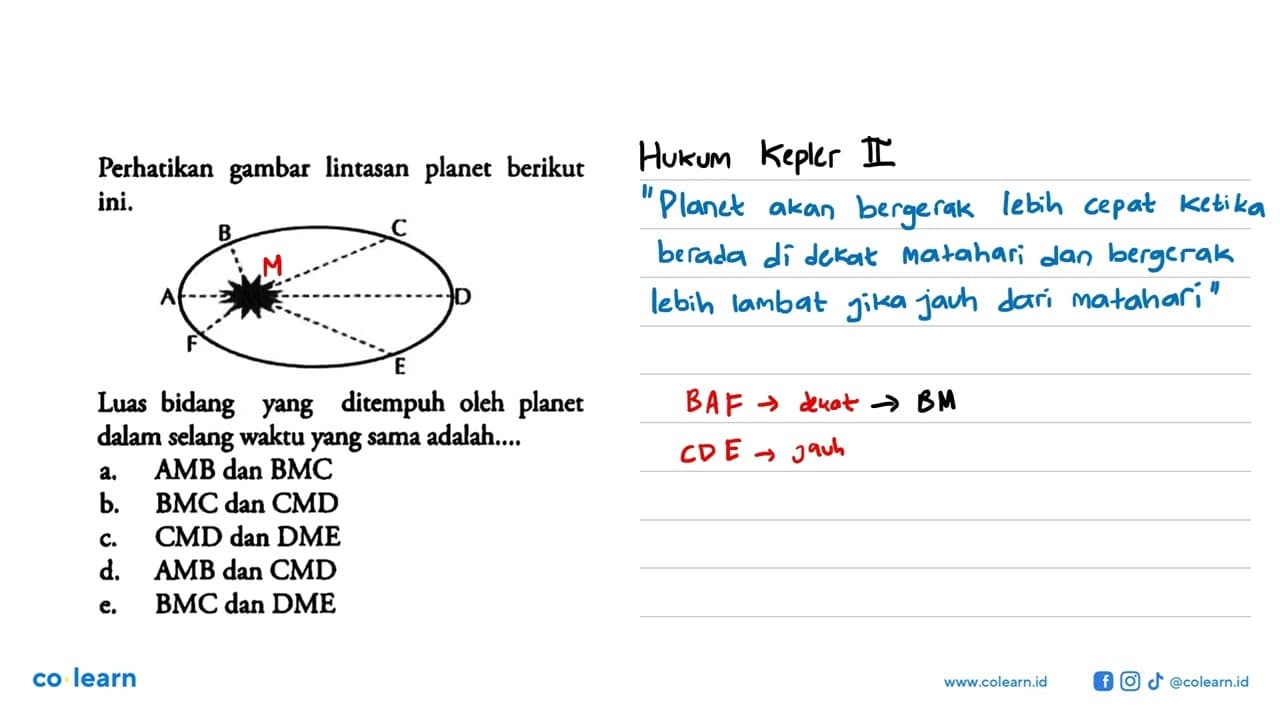 Perhatikan gambar lintasan planet berikut
ini.
B
C
M
A
D
F
E
Luas bidang yang ditempuh oleh planet
dalam selang waktu yang sama adalah....
a. AMB dan BMC
b. BMC dan CMD
c. CMD dan DME
d. AMB dan CMD
e. BMC dan DME
Hukum Kepler II
"Planet akan bergerak lebih cepat ketika
berada di dekat matahari dan bergerak
lebih lambat jika jauh dari matahari"
BAF → dekat → BM
CDE → jauh
co learn
www.colearn.id
@colearn.id